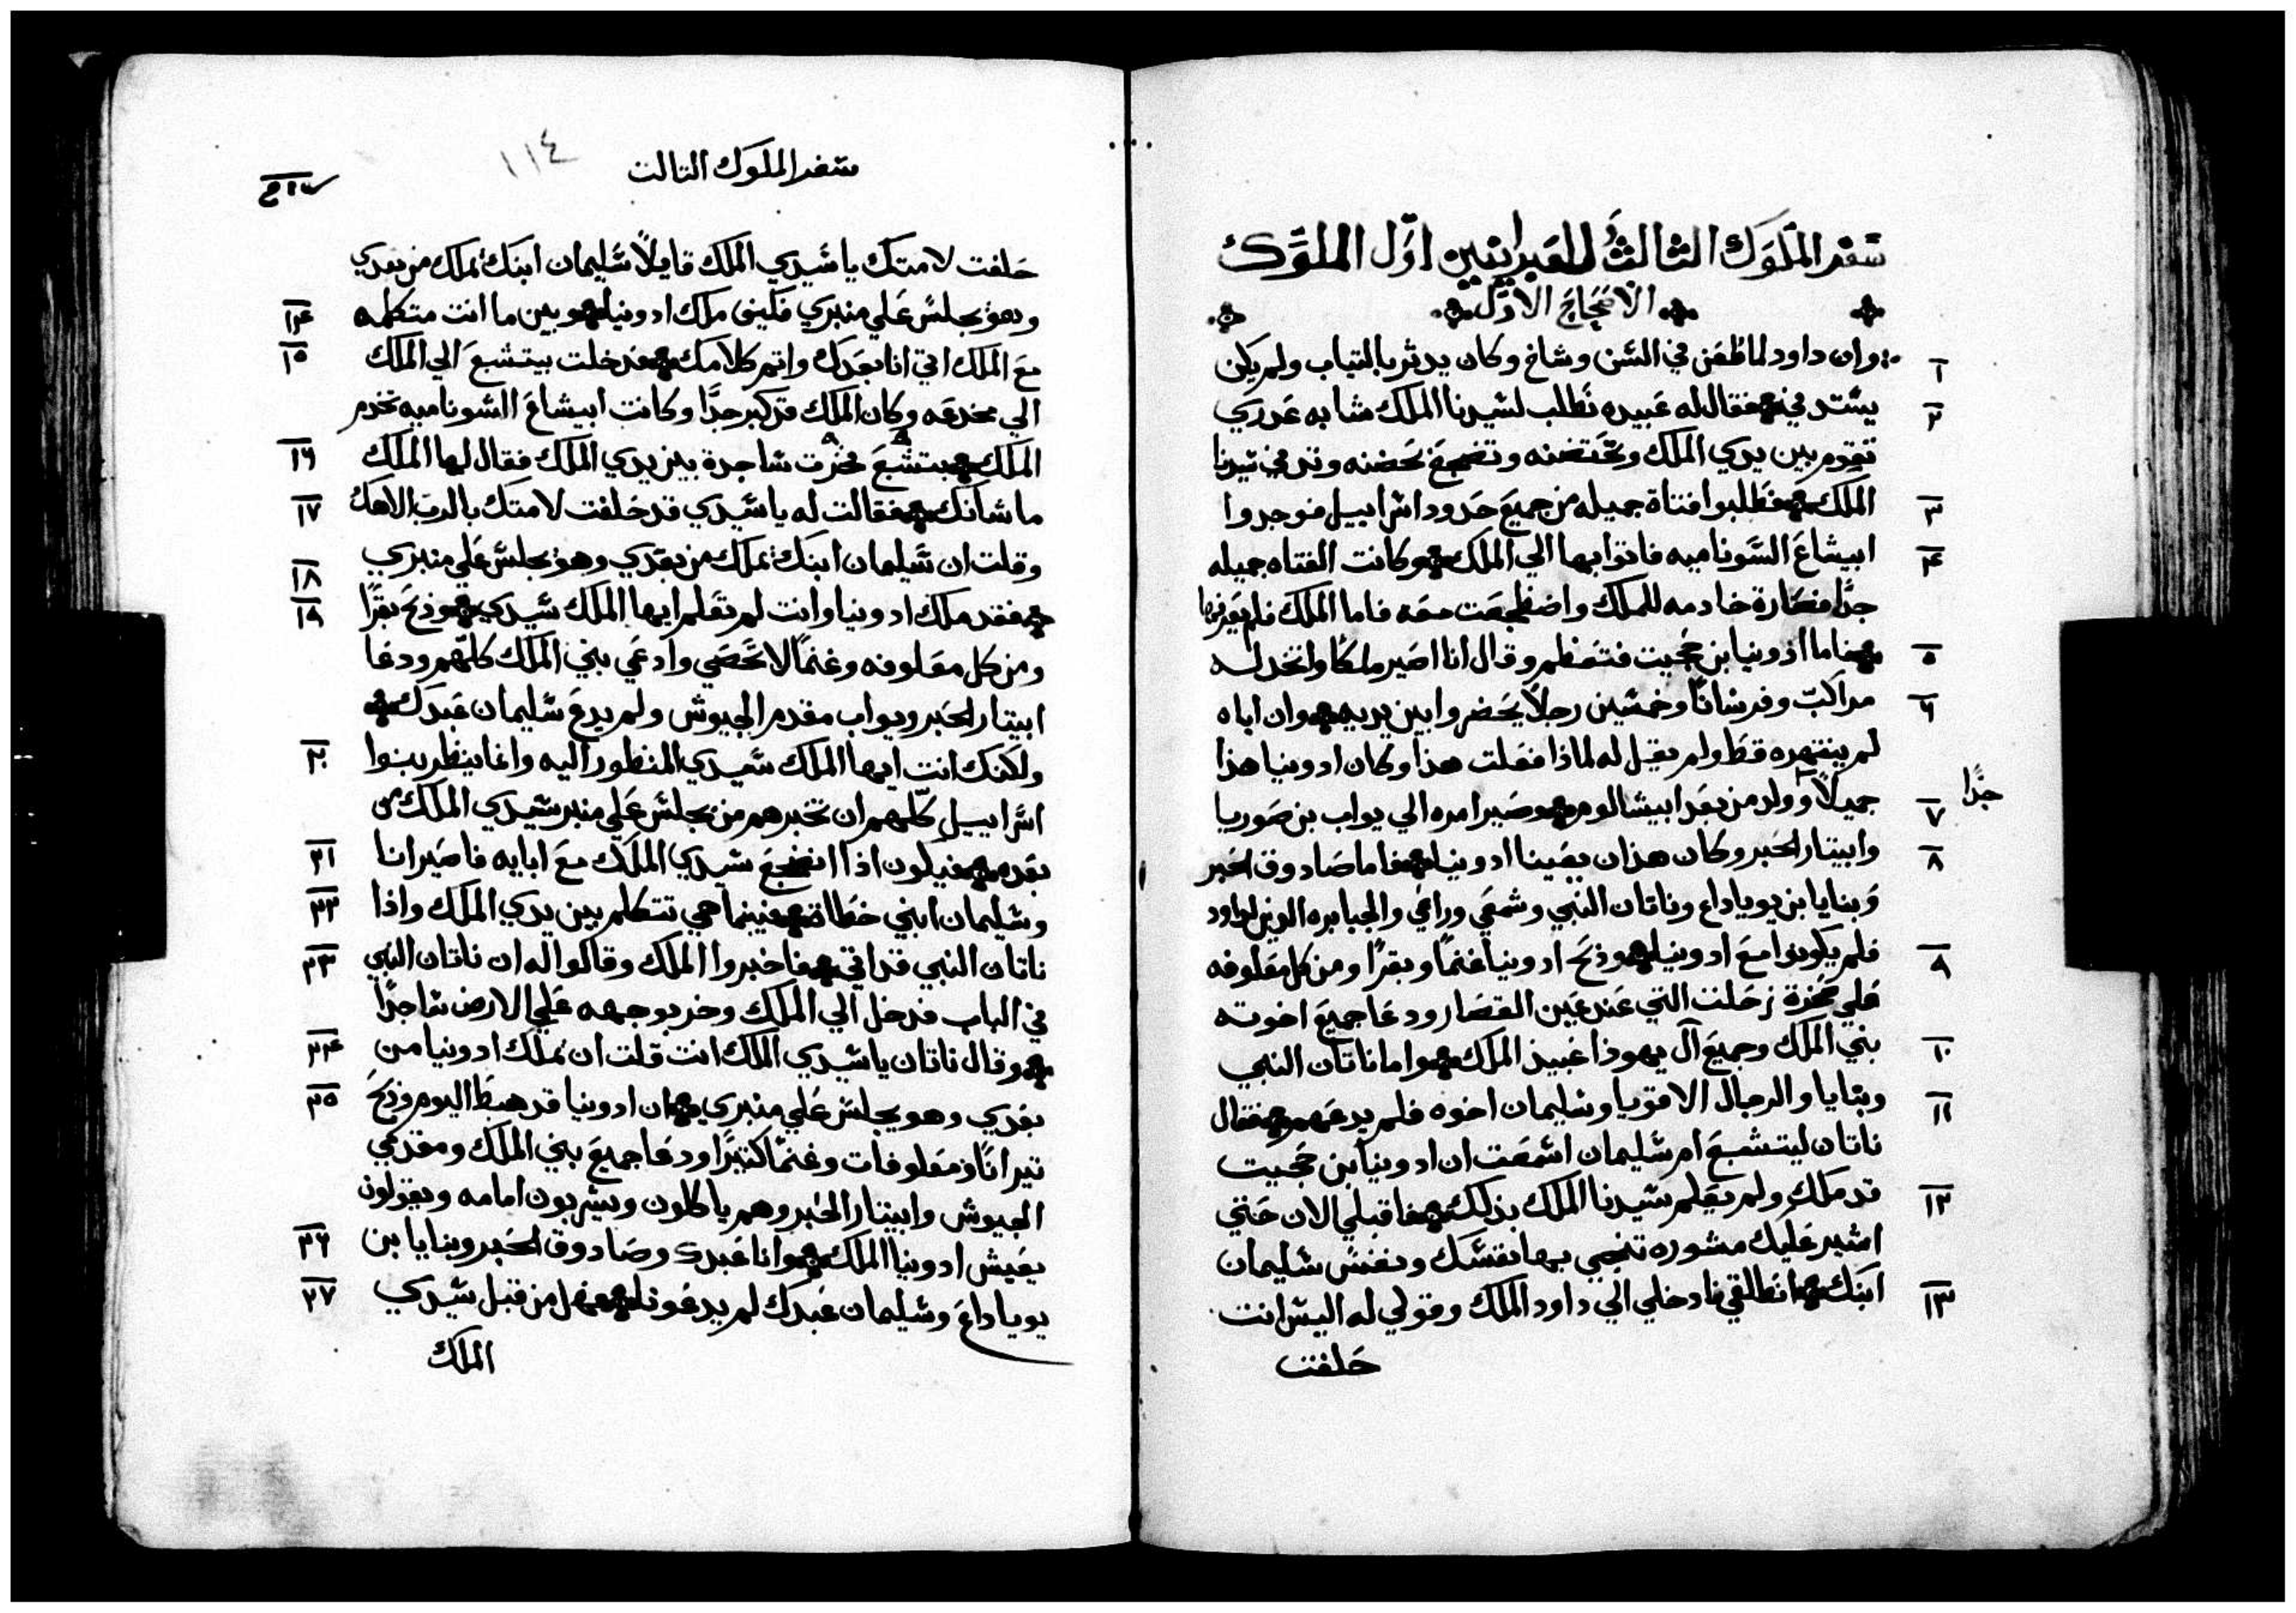 سفر الملوك الثالث للعبرانيين اول الملوك
الاصحاح الاول
١ وان داود لما طعن في السن وشاخ وكان يدثر بالتياب ولم يكن
٢ يستدفي فقال له عبيده نطلب لسيدنا الملك شابه عدري
تقوم بين يدي الملك وتحتضنه وتضجع بحضنه وتدفي سيدنا
٣ الملك فطلبوا فتاة جميله من جميع حدود اسراييل فوجدوا
٤ ابيشاع السوناميه فاتوا بها الي الملك وكانت الفتاه جميله
جدًا فصارة خادمه للملك واضطجعت معه فاما الملك فلم يعرفها
٥ فاما ادونيا بن حجيت فتعظم وقال انا اصير ملكًا واتخد له
٦ مراكبّ وفرسانًا وخمسين رجلاً يحضروا بين يديه وان اباه
لم ينتهره قط ولم يقيل له لماذا فعلت هذا وكان ادونيا هذا
٧ جميلاً وولد من بعد ابيشالوم وصير امره الي يواب بن صوريا
جدًا
٨ وابيتار الحبر وكان هذان يعينا ادونيا فاما صادوق الحبر
وبنايا بن يوياداع وناتان النبي وشمعي وراعي والجبابره الدين لداود
٩ فلم يكونوا مع ادونيا وذبح ادونيا غنمًا وبقرًا ومن كل معلوفه
علي صخرة زحلت التي عند عين القصار ودعا جميع اخوته
١٠ بني الملك وجميع آل يهوذا عبيد الملك واما ناتان النبي
١١ وبنايا والرجال الاقويا وسليمان اخوه فلم يدعهم فقال
ناتان لبيتشبع ام سليمان اسمعت ان ادونيا بن حجيت
١٢ قد ملك ولم يعلم سيدنا الملك بذلك فاقبلي الان حتي
اشير عليك مشوره تنجي بها نفسك ونفس سليمان
١٣ ابنك انطلقي فادخلي الي داود الملك وقولي له اليس انت
حلفت
سفر الملوك التالت
١١٤
حلفت لامتك يا سيدي الملك قايلاً سليمان ابنك يملك من بعدي
١٤ وهو يجلس علي منبري فكيف ملك ادونيا وبين ما انت متكلمه
١٥ مع الملك اتي انا بعدك واتمم كلامك فدخلت بيتشبع الي الملك
الي مخدعه وكان الملك قد كبر جدًا وكانت ابيشاع السوناميه تخدم
١٦ الملك بتشبع فخرت ساجدة بين يدي الملك فقال لها الملك
١٧ ما شانك فقالت له يا سيدي قد حلفت لامتك بالرب الاهك
وقلت ان سليمان ابنك يملك من بعدي وهو يجلس علي منبري
١٨ فقد ملك ادونيا وانت لم تعلم ايها الملك سيدي وذبح بقرًا
١٩ ومن كل معلوفه وغنمًا لا تحصي وادعي بني الملك كلهم ودعا
ابيتار الحبر ويواب مقدم الجيوش ولم يدع سليمان عبدك
٢٠ ولكنك انت ايها الملك سيدي المنظور اليه وانما ينظر بنوا
اسراييل كلهم ان تخبرهم من يجلس علي منبر سيدي الملك من
٢١ بعده فيكون اذا انضجع سيدي الملك مع ابايه فاصير انا
٢٢ وسليمان ابني خطاة فبينما هي تتكلم بين يدي الملك واذا
٢٣ ناتان النبي قد اتي فاخبروا الملك وقالوا له ان ناتان النبي
في الباب فدخل الي الملك وخر بوجهه علي الارض ساجدًا
٢٤ وقال ناتان يا سيدي الملك انت قلت ان يملك ادونيا من
٢٥ بعدي وهو يجلس علي منبري ان ادونيا قد هبط اليوم وذبح
تيرانًا ومعلوفات وغنمًا كتيرًا ودعا جميع بني الملك ومقدمي
الجيوش وابيتار الحبر وهم ياكلون ويشربون امامه ويقولون
٢٦ يعيش ادونيا الملك وانا عبدك وصادوق الحبر وبنايا بن
٢٧ يوياداع وسليمان عبدك لم يدعونا فهل من قبل سيدي
الملك